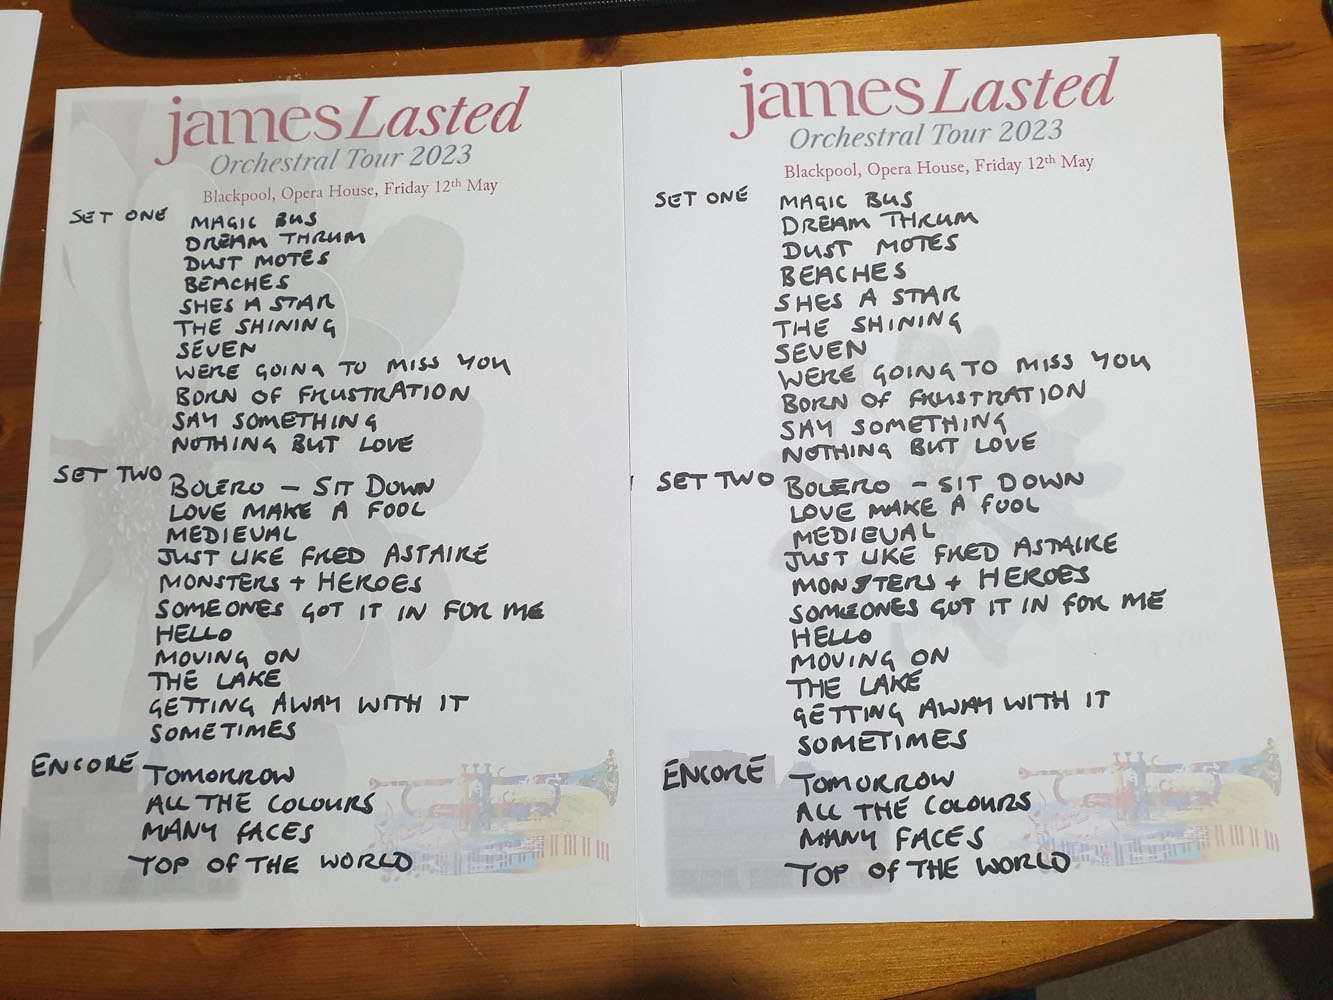 james Lasted
Orchestral Tour 2023
Blackpool, Opera House, Friday 12th May
SET ONE MAGIC BUS
DREAM THRUM
DUST MOTES
BEACHES
SHES A STAR
THE SHINING
SEVEN
WERE GOING TO MISS YOU
BORN OF FRUSTRATION
SAY SOMETHING
NOTHING BUT LOVE
SET TWO BOLERO - SIT DOWN
LOVE MAKE A FOOL
MEDIEVAL
JUST LIKE FRED ASTAIRE
MONSTERS + HEROES
SOMEONES GOT IT IN FOR ME
HELLO
MOVING ON
THE LAKE
GETTING AWAY WITH IT
SOMETIMES
ENCORE TOMORROW
ALL THE COLOURS
MANY FACES
TOP OF THE WORLD
james Lasted
Orchestral Tour 2023
Blackpool, Opera House, Friday 12th May
SET ONE MAGIC BUS
DREAM THRUM
DUST MOTES
BEACHES
SHES A STAR
THE SHINING
SEVEN
WERE GOING TO MISS YOU
BORN OF FRUSTRATION
SAY SOMETHING
NOTHING BUT LOVE
SET TWO BOLERO - SIT DOWN
LOVE MAKE A FOOL
MEDIEVAL
JUST LIKE FRED ASTAIRE
MONSTERS + HEROES
SOMEONES GOT IT IN FOR ME
HELLO
MOVING ON
THE LAKE
GETTING AWAY WITH IT
SOMETIMES
ENCORE TOMORROW
ALL THE COLOURS
MANY FACES
TOP OF THE WORLD